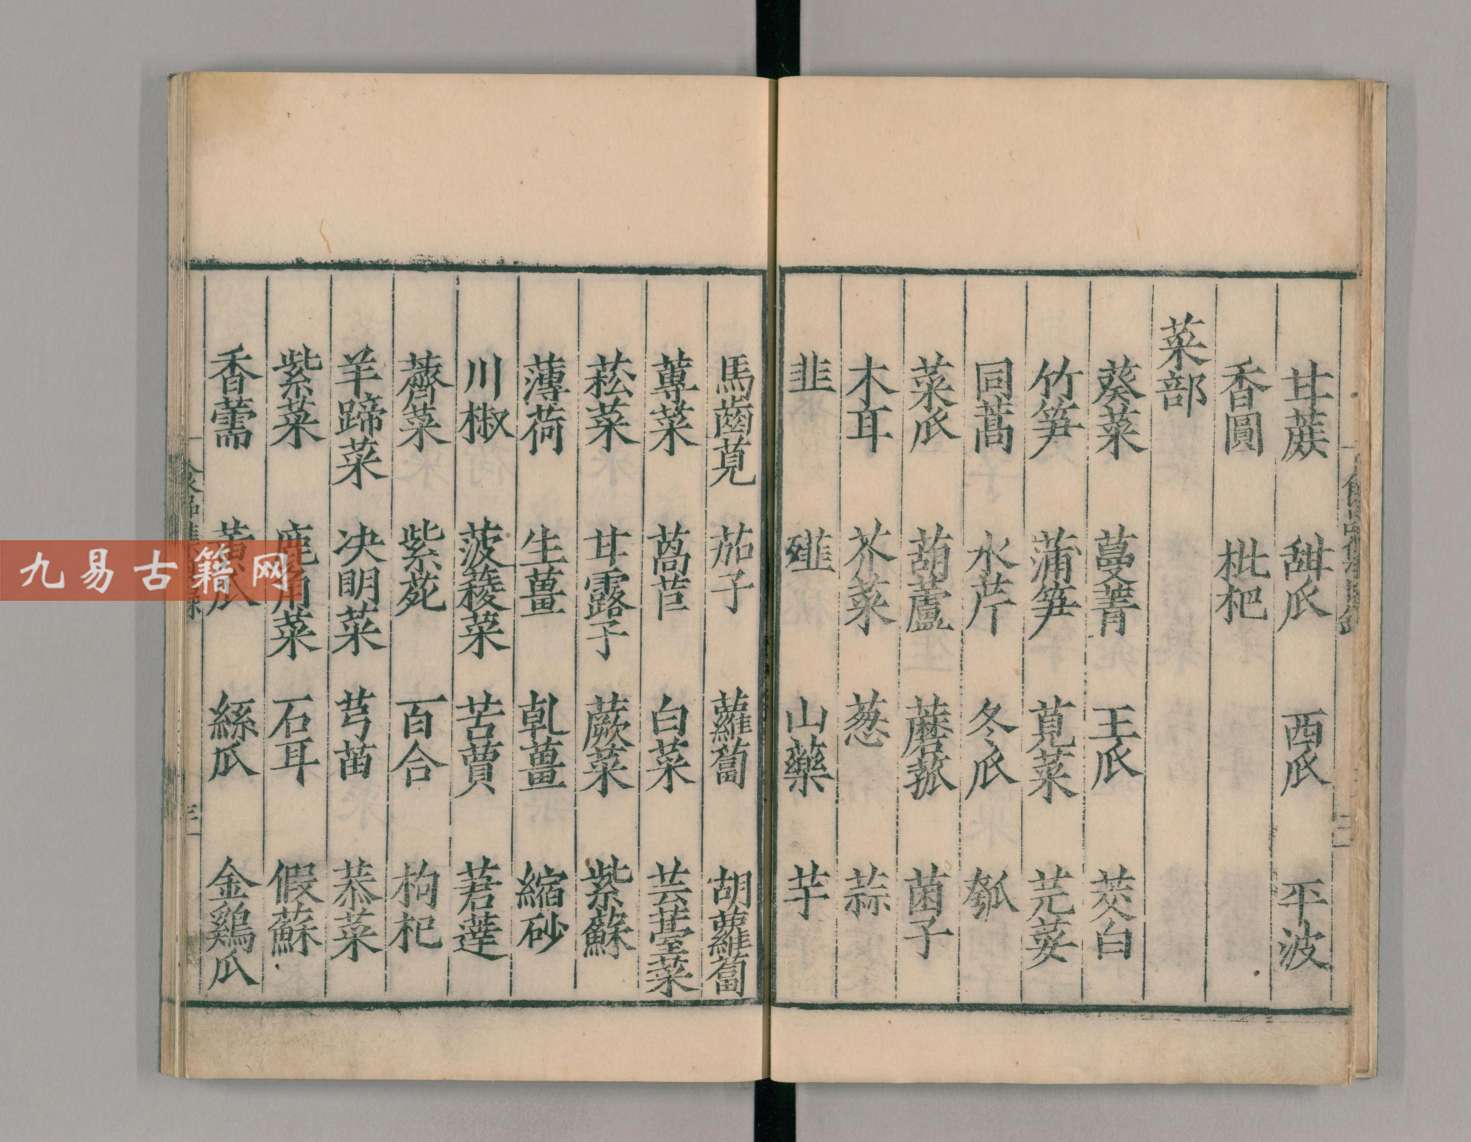 甘蔗 甜瓜 西瓜 平波
香圓 枇杷
菜部
葵菜 蔓菁 王瓜 茭白
竹笋 蒲笋 莧菜 芫荽
同蒿 水芹 冬瓜 瓠
菜瓜 葫蘆 蘑菰 菌子
木耳 芥菜 葱 蒜
韭 山藥 芋
馬齒莧 茄子 蘿蔔 胡蘿蔔
蓴菜 萵苣 白菜 芸薹菜
菘菜 甘露子 蕨菜 紫蘇
薄荷 生薑 乹薑 縮砂
川椒 菠薐菜 苦蕒 莙薘
薺菜 紫菀 百合 枸杞
羊蹄菜 决明菜 芎苗 菾菜
紫菜 鹿角菜 石耳 假蘇
香薷 黄瓜 絲瓜 金鷄瓜
九易古籍网